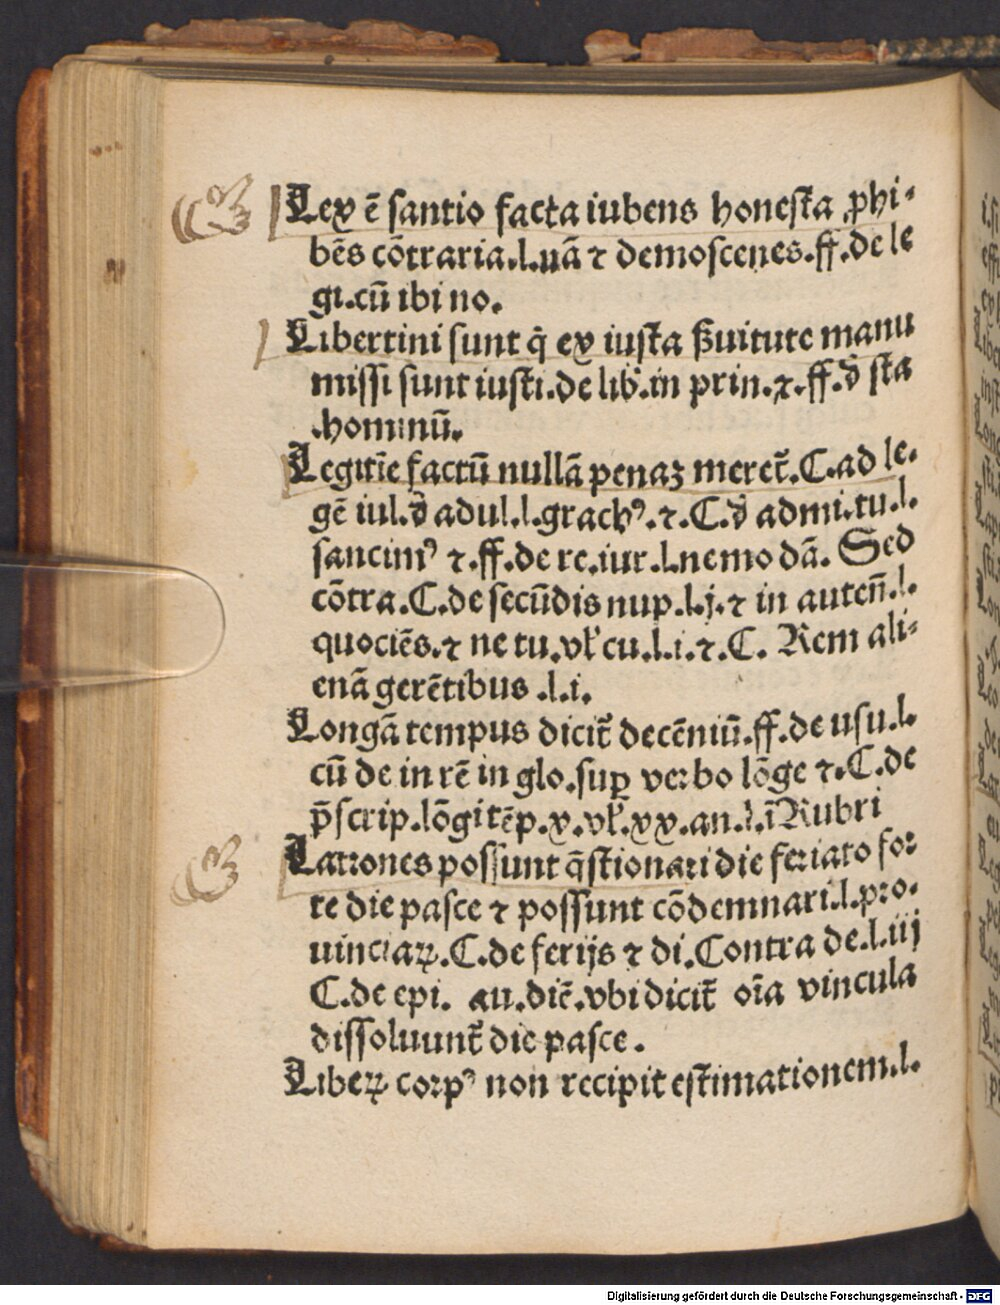 Lex ē santio facta iubens honesta ꝓhi-
bēs cōtraria.l.uā ⁊ demoscenes.ff.de le
gi.cū ibi no.
Libertini sunt q̄ ex iusta ßuitute manu
missi sunt iusti.de lib̾.in prin.⁊.ff.d̄ sta
hominū.
Legitīe factū nullā penaʒ meret̄.C.ad le-
gē iul.d̄ adul.l.grachꝰ.⁊.C.d̄ admi.tu.l.
sancimꝰ ⁊.ff.de re.iur.l.nemo dā. Sed
cōtra.C.de secūdis nup.l.j.⁊ in auten̄.l.
quociēs.⁊ ne tu.vl̾ cu.l.i.⁊.C. Rem ali-
enā gerētibus .l.i.
Longā tempus dicit̄ decēniū.ff.de usu.l.
cū de in rē in glo.suꝑ verbo lōge ⁊.C.de
p̄scrip.lōgi tēp.x.vl̾.xx.an.l.ī Rubri
Latrones possunt q̄stionari die feriato for
te die pasce ⁊ possunt cōdemnari.l.pro-
uinciaꝝ.C.de ferijs ⁊ di.Contra de.l.iij
C.de epi. au.diē.vbi dicit̄ oīa vincula
dissoluunt̄ die pasce.
Libeꝝ corpꝰ non recipit estimationem.l.
Digitalisierung gefördert durch die Deutsche Forschungsgemeinschaft - DFG